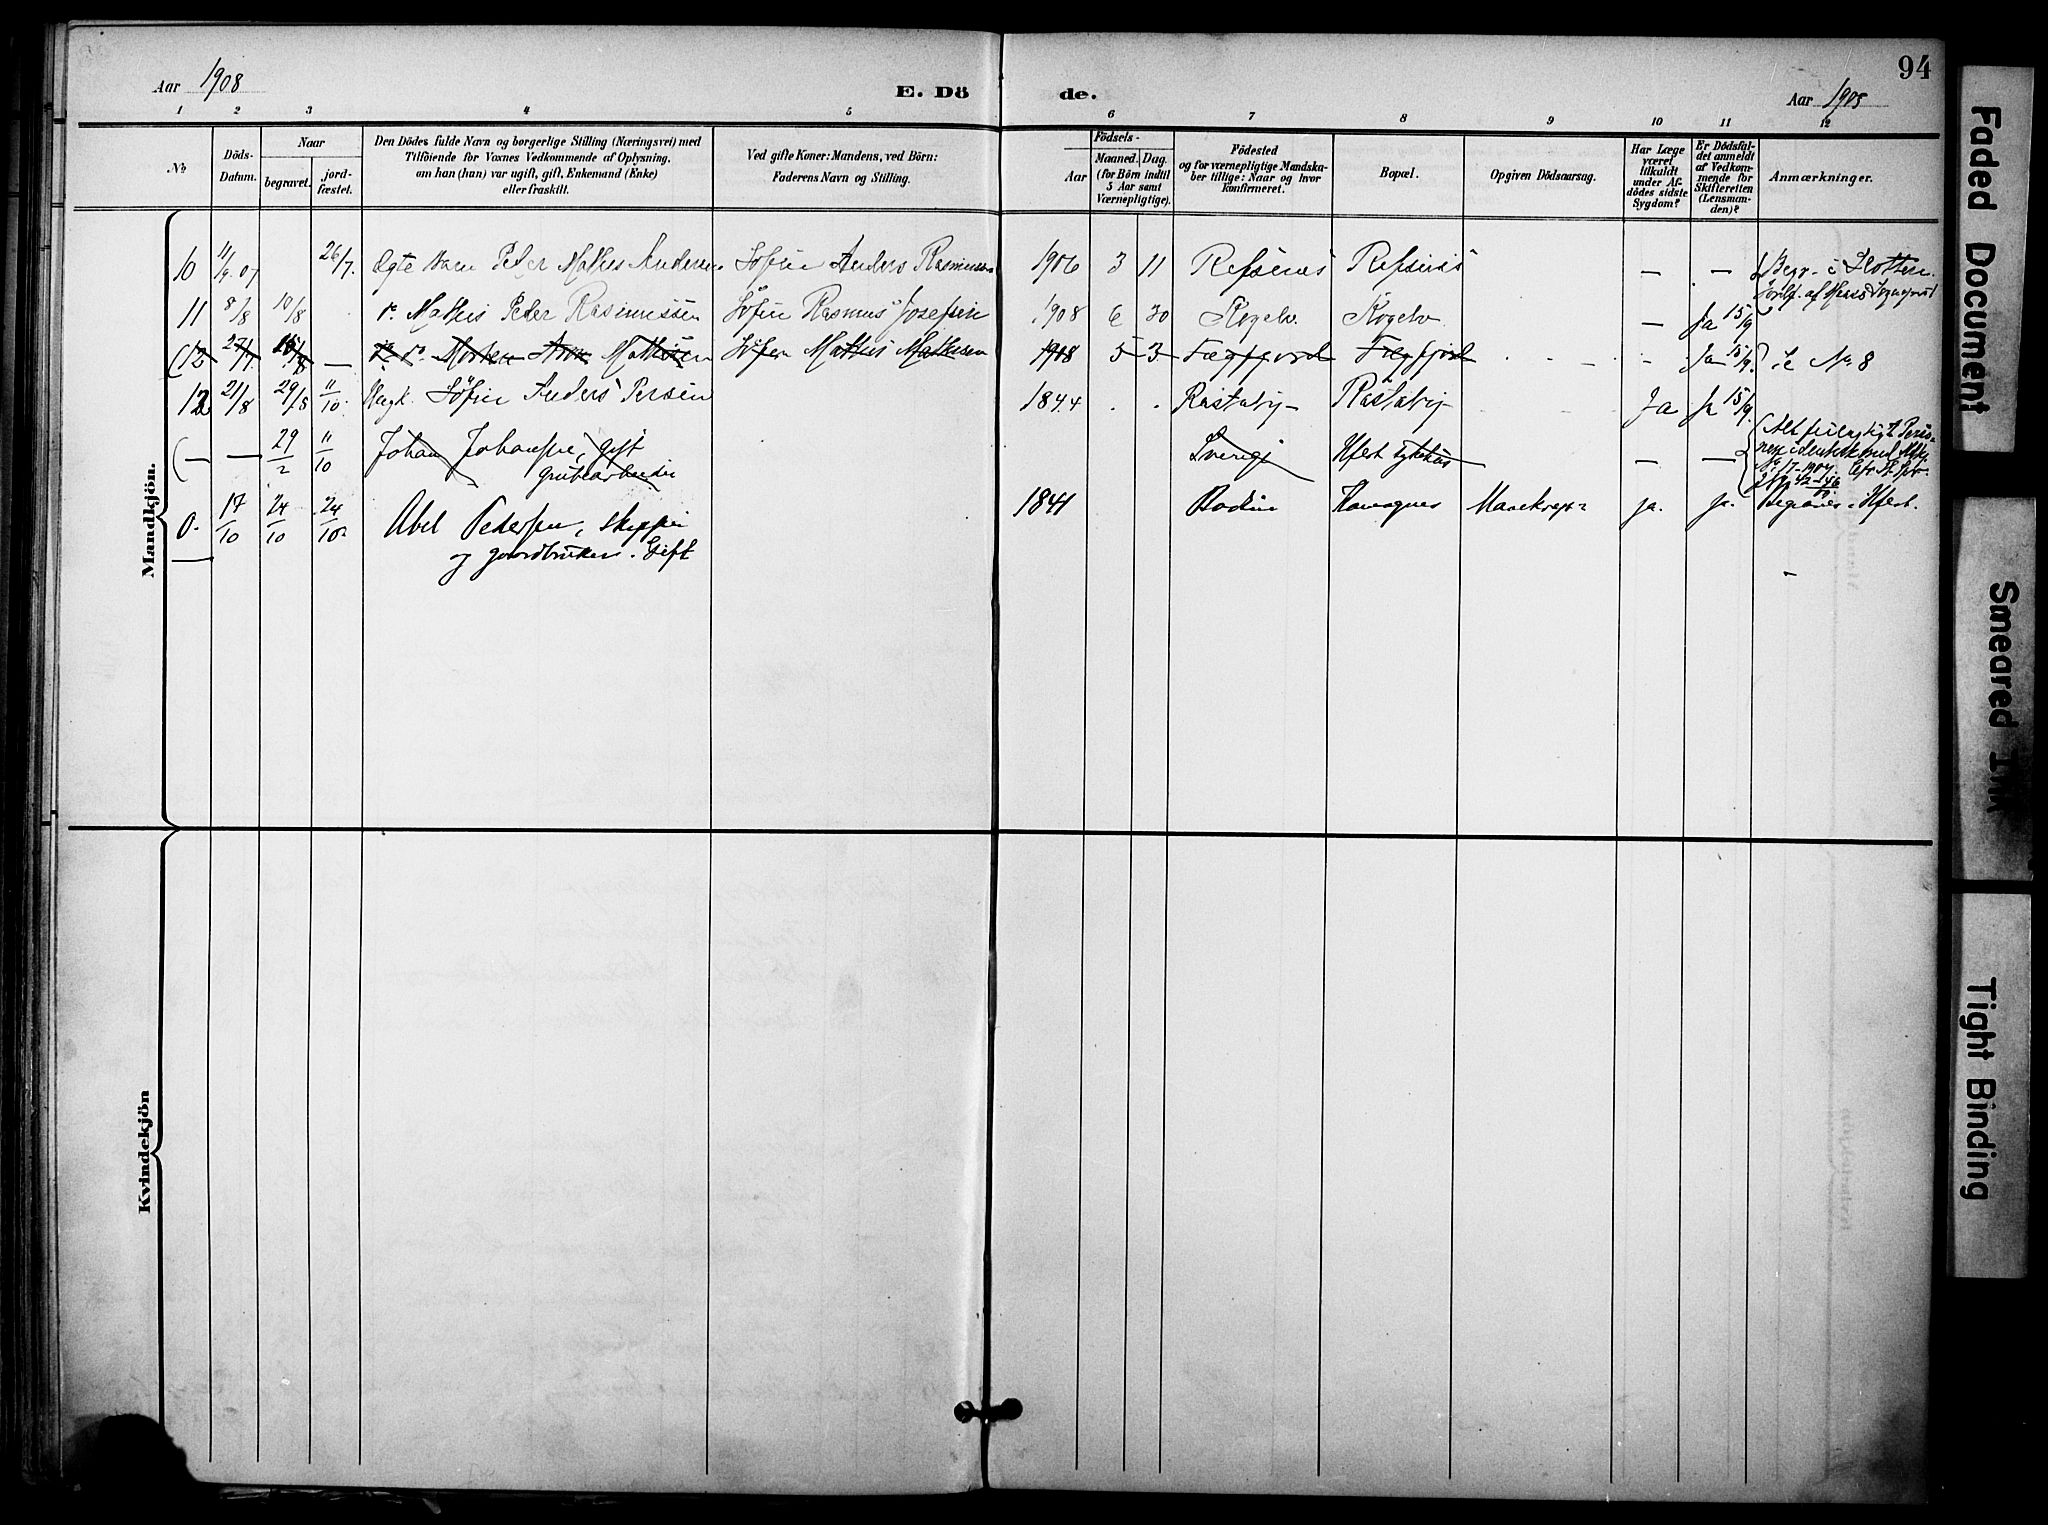 94
Aar 1908
E. Dö de.
Aar 1908
1 2 3 4 5 6 7 8 9 10 11 12
No.
Döds-
Datum.
Naar
begravet.
jord-
fæstet.
Den Dödes fulde Navn og borgerlige Stilling (Næringsvei) med
Tilföiende for Voxnes Vedkommende af Oplysning,
om han (hun) var ugift, gift, Enkemand (Enke)
eller fraskilt.
Ved gifte Koner: Mandens, ved Börn:
Faderens Navn og Stilling.
Födsels-
Aar
Maaned. Dag.
(for Börn indtil
5 Aar samt
Værnepligtige).
Födested
og for værnepligtige Mandska-
ber tillige: Naar og hvor
konfirmeret.
Bopæl.
Opgiven Dödsaarsag.
Har Læge
været
tilkaldt
under Af-
dödes sidste
Sygdom?
Er Dödsfal-
det anmeldt
af Vedkom-
mende for
Skifteretten
(Lensman-
den)?
Anmærkninger.
Mandkjön.
10 11/9 07 26/7. Ægte Barn Peter Mathis Andersen Söfin Anders Rasmussen 1906 3 11 Refsenes Refsenes — — Begr. i Kotten.
Jordf. af Sognepræst
11 8/8 10/8 Mathis Peder Rasmussen Söfin Rasmus Josefsen 1908 6 30 Kogelv. Kogelv — Ja 15/9
(12 27/7. — Morten Mathisen Söfin Mathis Mathisen 1908 5 3 Fægfjord Fægfjord - Ja 15/9. se No 8
12 21/8 29/8 11/10. Söfin Anders Persen 1844 . . Rastaby Rastaby Ja Ja 15/9.
(— — 29/2 11/10 Johan Johansen, gift
grubearbeider
Sverige Hfest sykehus — —
0. 17/10 24/10 24/10 Abel Pedersen, skipper
og gaardbruker. Gift
1841 Bodin Mavekræft ja. ja. Hfest.
—
Kvindekjön
Faded Document
Smeared Ink
Tight Binding